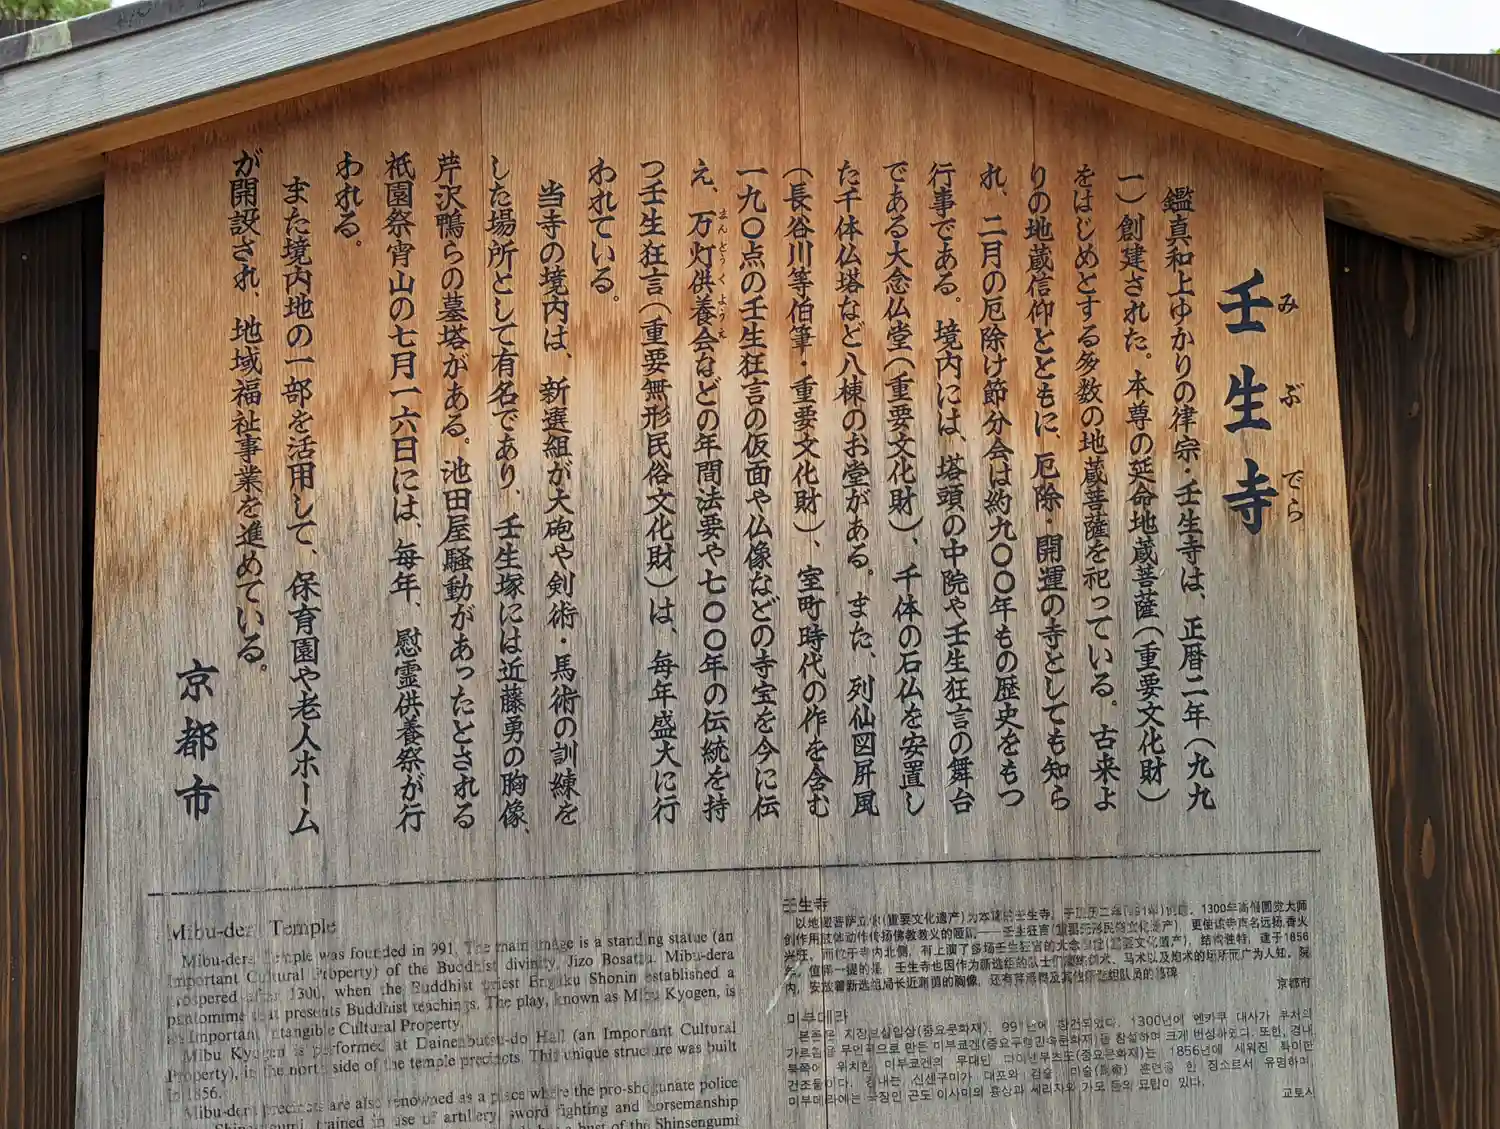 壬生寺
みぶでら
鑑真和上ゆかりの律宗・壬生寺は、正暦二年(九九
一)創建された。本尊の延命地蔵菩薩(重要文化財)
をはじめとする多数の地蔵菩薩を祀っている。古来よ
りの地蔵信仰とともに、厄除・開運の寺としても知ら
れ、二月の厄除け節分会は約九〇〇年もの歴史をもつ
行事である。境内には、塔頭の中院や壬生狂言の舞台
である大念仏堂(重要文化財)、千体の石仏を安置し
た千体仏塔など八棟のお堂がある。また、列仙図屏風
(長谷川等伯筆・重要文化財)、室町時代の作を含む
一九〇点の壬生狂言の仮面や仏像などの寺宝を今に伝
え、万灯供養会などの年間法要や七〇〇年の伝統を持
まんとうくようえ
つ壬生狂言(重要無形民俗文化財)は、毎年盛大に行
われている。
当寺の境内は、新選組が大砲や剣術・馬術の訓練を
した場所として有名であり、壬生塚には近藤勇の胸像、
芹沢鴨らの墓塔がある。池田屋騒動があったとされる
祇園祭宵山の七月一六日には、毎年、慰霊供養祭が行
われる。
また境内地の一部を活用して、保育園や老人ホーム
が開設され、地域福祉事業を進めている。
京都市
Mibu-dera Temple
Mibu-dera Temple was founded in 991. The main image is a standing statue (an
Important Cultural Property) of the Buddhist divinity, Jizo Bosatsu. Mibu-dera
prospered after 1300, when the Buddhist priest Engaku Shonin established a
pantomime that presents Buddhist teachings. The play, known as Mibu Kyogen, is
an Important Intangible Cultural Property.
Mibu Kyogen is performed at Dainenbutsu-do Hall (an Important Cultural
Property), in the north side of the temple precincts. This unique structure was built
in 1856.
Mibu-dera precincts are also renowned as a place where the pro-shogunate police
Shinsengumi, trained in use of artillery, sword fighting and horsemanship
a bust of the Shinsengumi
壬生寺
以地藏菩萨立像(重要文化遗产)为本尊的壬生寺,于正历二年(991年)创建。1300年高僧圆觉大师
创作用肢体动作传扬佛教教义的哑剧——壬生狂言(重要无形民俗文化遗产),更使该寺声名远扬,香火
兴旺。而位于寺内北侧,有上演了多场壬生狂言的大念佛堂(重要文化遗产),结构独特,建于1856
年。值得一提的是,壬生寺也因作为新选组的队士们训练剑术、马术以及炮术的场所而广为人知。院
内,安放着新选组局长近藤勇的胸像,还有芹泽鸭及其他新选组队员的墓碑
京都市
미부데라
본존은 지장보살입상(중요문화재). 991년에 창건되었다. 1300년에 엔카쿠 대사가 부처의
가르침을 무언극으로 만든 미부쿄겐(중요무형민속문화재)을 창설하며 크게 번성하였다. 또한, 경내
북쪽에 위치한 미부쿄겐의 무대인 다이넨부츠도(중요문화재)는 1856년에 세워진 특이한
건조물이다. 경내는 신센구미가 대포와 검술, 마술(馬術) 훈련을 한 장소로서 유명하며,
미부데라에는 국장인 곤도 이사미의 흉상과 세리자와 가모 등의 묘탑이 있다.
교토시